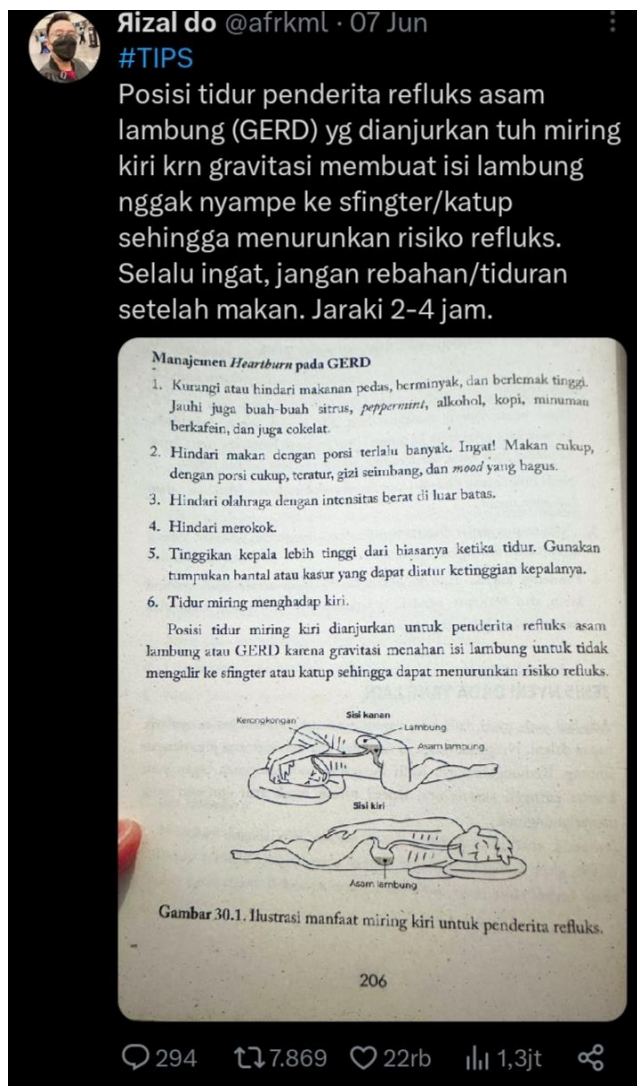 Яizal do @afrkml · 07 Jun
#TIPS
Posisi tidur penderita refluks asam
lambung (GERD) yg dianjurkan tuh miring
kiri krn gravitasi membuat isi lambung
nggak nyampe ke sfingter/katup
sehingga menurunkan risiko refluks.
Selalu ingat, jangan rebahan/tiduran
setelah makan. Jaraki 2-4 jam.
Manajemen Heartburn pada GERD
1. Kurangi atau hindari makanan pedas, berminyak, dan berlemak tinggi.
Jauhi juga buah-buah sitrus, peppermint, alkohol, kopi, minuman
berkafein, dan juga cokelat.
2. Hindari makan dengan porsi terlalu banyak. Ingat! Makan cukup,
dengan porsi cukup, teratur, gizi seimbang, dan mood yang bagus.
3. Hindari olahraga dengan intensitas berat di luar batas.
4. Hindari merokok.
5. Tinggikan kepala lebih tinggi dari biasanya ketika tidur. Gunakan
tumpukan bantal atau kasur yang dapat diatur ketinggian kepalanya.
6. Tidur miring menghadap kiri.
Posisi tidur miring kiri dianjurkan untuk penderita refluks asam
lambung atau GERD karena gravitasi menahan isi lambung untuk tidak
mengalir ke sfingter atau katup sehingga dapat menurunkan risiko refluks.
Sisi kanan
Kerongkongan
Lambung
Asam lambung
Sisi kiri
Asam lambung
Gambar 30.1. Ilustrasi manfaat miring kiri untuk penderita refluks.
206
294 7.869 22rb 1,3jt